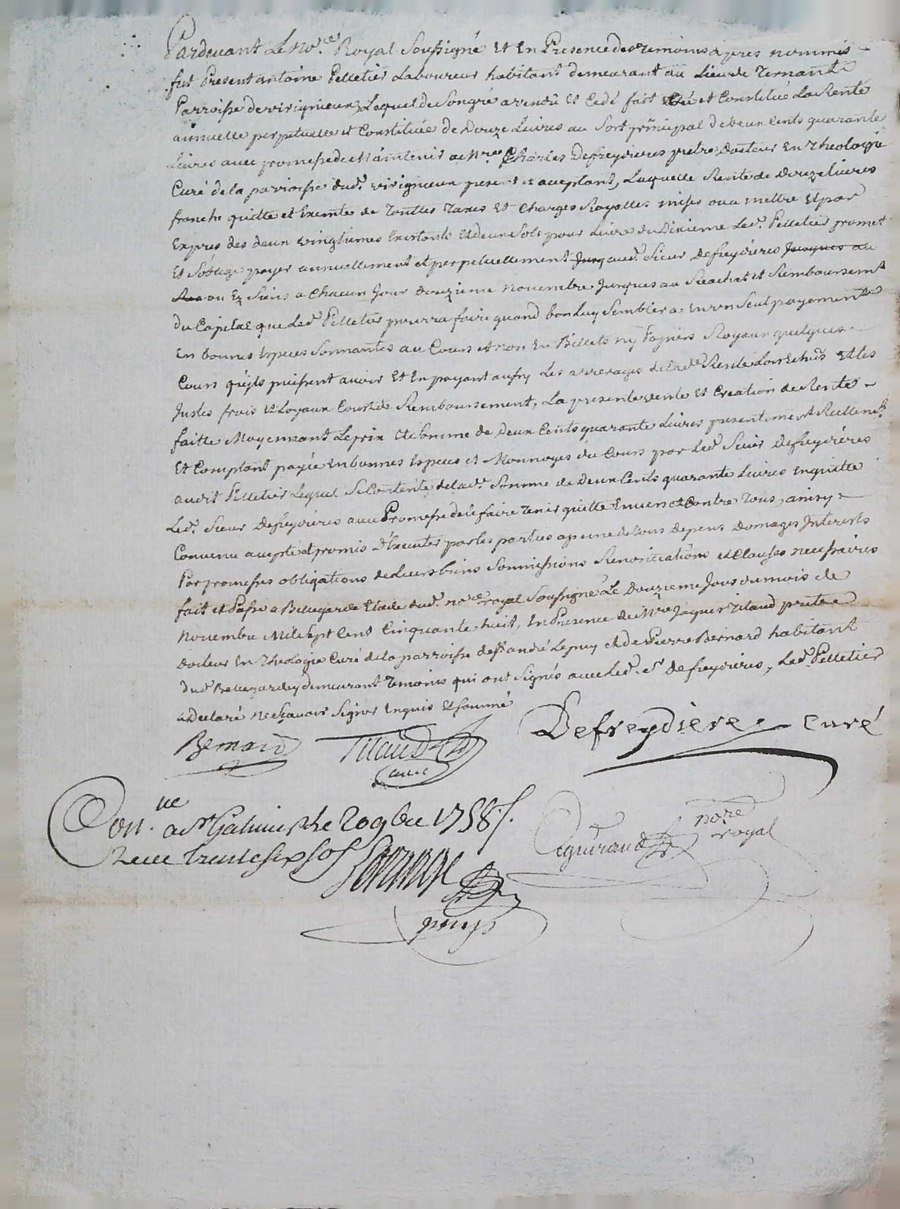 Pardevant Le no.re Royal Soussigné Et En Presence des temoins apres nommés
fut Present antoine Pelletier Laboureur habitant demeurant au Lieu de Ternant
Parroisse de virignieux Lequel de Son gré a vendu Et Cedé fait et Constitué La Rente
annuelle perpetuelle et Constituée de Douze Livres au Sort principal de deux Cents quarante
Livres avec promesse de et maintenir a M.re Charles Defreydieres pretre Docteur En Theologie
Curé de la parroisse dud. virignieux present et aceptant, Laquelle Rente de douze livres
franche quitte et Exempte de Touttes Taxes Et Charges Royalles mises ou a mettre Et par
Expres des deux vingtiemes Et deux Sols pour Livre du Dixieme Led. Pelletier promet
Et S'oblige payer annuellement et perpetuellement aud. Sieur Defreydieres Jusques au
ou Es Siens a Chacun Jour douzieme novembre Jusques au Rachat et Remboursem.t
du Capital que Led. Pelletier pourra faire quand bon Luy Semblera En un Seul payement
En bonnes Especes Sonnantes au Cours et non En Billets ny Papiers Royaux quelques
Cours qu'ils puissent avoir Et En payant aussy Les arrerages de lad. Rente Lors Echus Et les
Justes frais Et Loyaux Couts de Remboursement, La presente vente Et Creation de Rente
faitte Moyennant Le prix Et Somme de Deux Cents quarante Livres presentement Reellem.t
Et Comptant payée En bonnes Especes et Monnoyes du Cours par Led. Sieur Defreydieres
audit Pelletier Lequel Se Contente de lad. Somme de Deux Cents quarante Livres En quitte
Led. Sieur Defreydieres avec Promesse de le faire Tenir quitte Envers et Contre Tous, ainsy
Convenu accepté et promis Executer par les parties a peine de tous Depens Domages Interets
Par promesses obligations de Leurs biens Soumissions Renonciations et Clauses necessaires
fait et Passé a Bellegarde Etude dud. no.re royal Soussigné Le Douzieme Jour du mois de
Novembre Mil Sept Cent Cinquante huit, En Presence de M.re Jaques Titaud pretre
docteur En Theologie Curé de la parroisse de S.t andré Le puy et de Pierre Bernard habitant
dud. Bellegarde y demeurant Temoins qui ont Signés avec Led. s.r defreydieres, Led. Pelletier
a Declaré ne Scavoir Signer Enquis Et Sommé
Bernard Titaud curé Defreydiere curé
Con.lle a S.t Galmier le 20 9bre 1758
Receu trente six sols
Peguiraud no.re royal